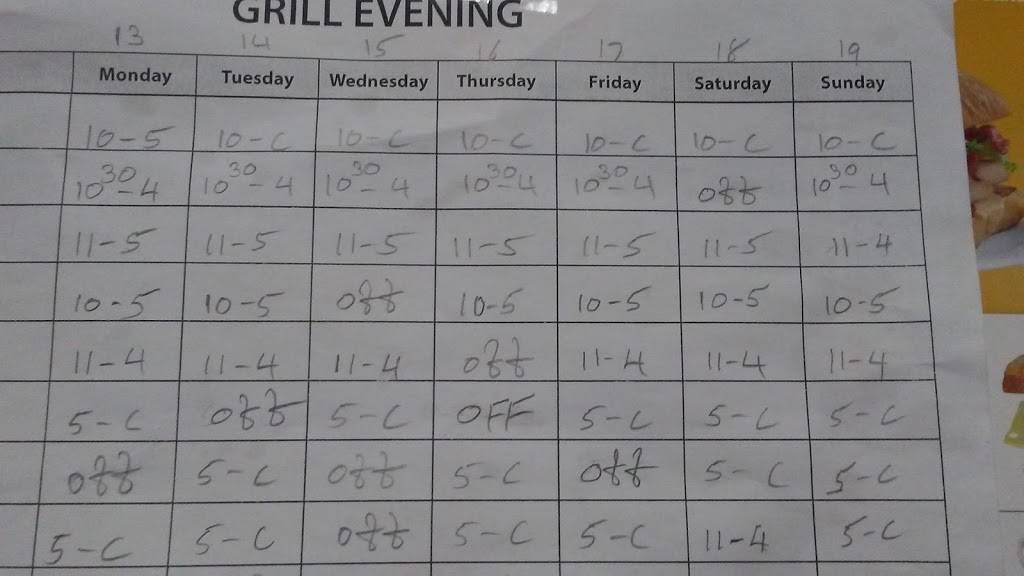 GRILL EVENING
13 14 15 16 17 18 19
Monday Tuesday Wednesday Thursday Friday Saturday Sunday
10-5 10-C 10-C 10-C 10-C 10-C 10-C
10³⁰-4 10³⁰-4 10³⁰-4 10³⁰-4 10³⁰-4 off 10³⁰-4
11-5 11-5 11-5 11-5 11-5 11-5 11-4
10-5 10-5 off 10-5 10-5 10-5 10-5
11-4 11-4 11-4 off 11-4 11-4 11-4
5-C off 5-C OFF 5-C 5-C 5-C
off 5-C off 5-C off 5-C 5-C
5-C 5-C off 5-C 5-C 11-4 5-C